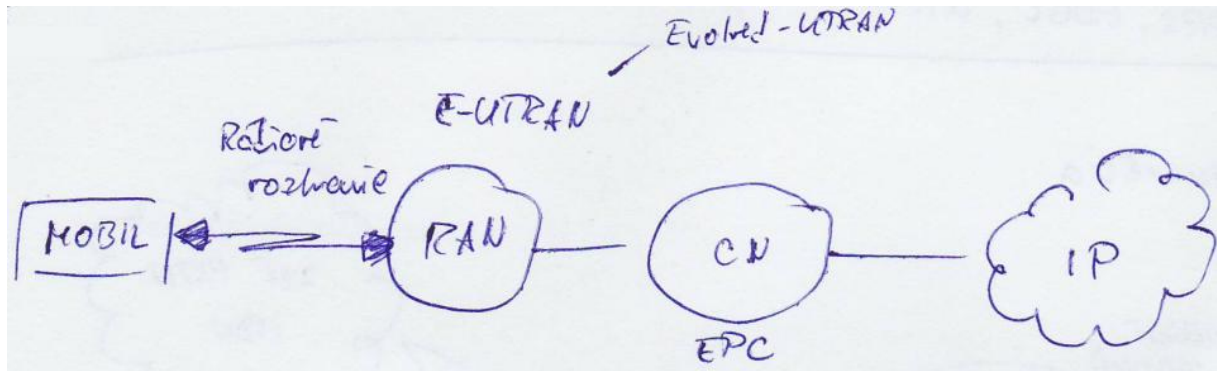 Evolved-UTRAN
E-UTRAN
Rádiové
rozhranie
MOBIL
RAN
CN
IP
EPC